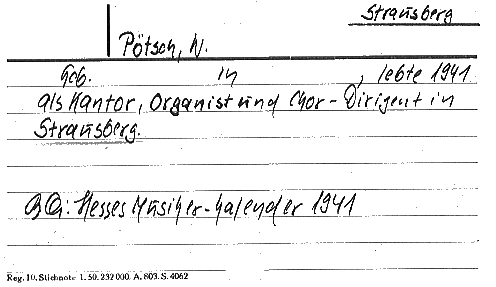 Strausberg
Pötsch, W.
Geb. in , lebte 1941
als Kantor, Organist und Chor-Dirigent in
Strausberg.
BQ: Hesses Musiker-Kalender 1941
Reg. 10. Stichnote 1. 50. 232 000. A. 803. S. 4062